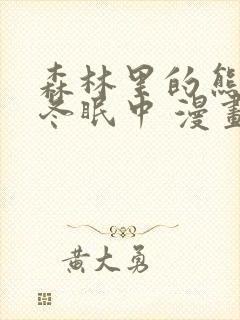 森林里的熊
冬眠中 漫畫
黄大勇